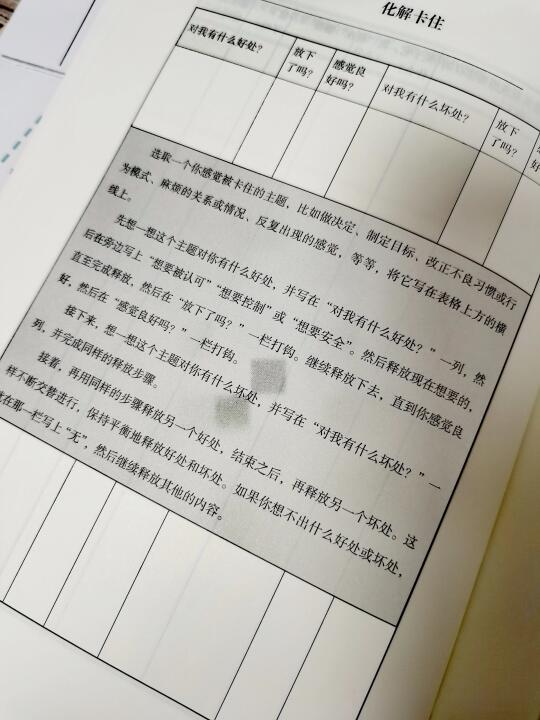 化解卡住
对我有什么好处？
放下
了吗？
感觉良
好吗？
对我有什么坏处？
放下
了吗？
好
选取一个你感觉被卡住的主题，比如做决定、制定目标，改正不良习惯或行
为模式、麻烦的关系或情况、反复出现的感觉，等等，将它写在表格上方的横
线上。
先想一想这个主题对你有什么好处，并写在“对我有什么好处？”一列，然
后在旁边写上“想要被认可”“想要控制”或“想要安全”。然后释放现在想要的，
直至完成释放，然后在“放下了吗？”一栏打钩。继续释放下去，直到你感觉良
好，然后在“感觉良好吗？”一栏打钩。
接下来，想一想这个主题对你有什么坏处，并写在“对我有什么坏处？”一
列，并完成同样的释放步骤。
接着，再用同样的步骤释放另一个好处，结束之后，再释放另一个坏处。这
样不断交替进行，保持平衡地释放好处和坏处。如果你想不出什么好处或坏处，
在那一栏写上“无”，然后继续释放其他的内容。